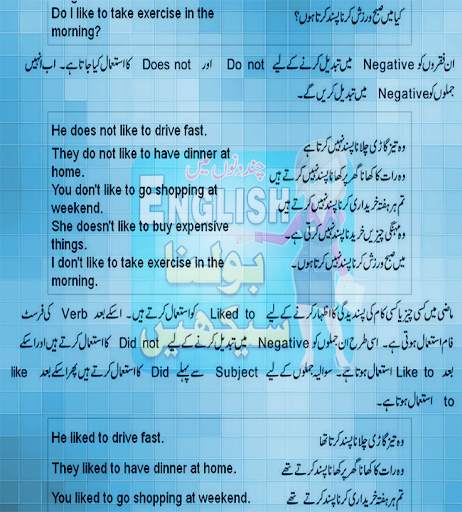 Do I like to take exercise in the
morning?
کیا میں صبح ورزش کرنا پسند کرتا ہوں؟
ان فقروں کو Negative میں تبدیل کرنے کے لیے Do not اور Does not کا استعمال کیا جاتا ہے۔ اب انہیں
جملوں کو Negative میں تبدیل کریں گے۔
He does not like to drive fast.
وہ تیز گاڑی چلانا پسند نہیں کرتا ہے
They do not like to have dinner at
home.
وہ رات کا کھانا گھر پر کھانا پسند نہیں کرتے ہیں
You don't like to go shopping at
weekend.
تم ہر ہفتہ خریداری کرنا پسند نہیں کرتے ہیں
She doesn't like to buy expensive
things.
وہ مہنگی چیزیں خریدنا پسند نہیں کرتی ہے۔
I don't like to take exercise in the
morning.
میں صبح ورزش کرنا پسند نہیں کرتا ہوں۔
چند دنوں میں
ENGLISH
بولنا
سیکھیں
ماضی میں کسی چیز یا کسی کام کی پسندیدگی کا اظہار کرنے کے لیے Liked to کو استعمال کرتے ہیں۔ اسکے بعد Verb کی فرسٹ
فام استعمال ہوتی ہے۔ اسی طرح ان جملوں کو Negative میں تبدیل کرنے کے لیے Did not کا استعمال کرتے ہیں اور اسکے
بعد Like to استعمال ہوتا ہے۔ سوالیہ جملوں کے لیے Subject سے پہلے Did کا استعمال کرتے ہیں پھر اسکے بعد like
to استعمال ہوتا ہے۔
He liked to drive fast.
وہ تیز گاڑی چلانا پسند کرتا تھا
They liked to have dinner at home.
وہ رات کا کھانا گھر پر کھانا پسند کرتے تھے
You liked to go shopping at weekend.
تم ہر ہفتہ خریداری کرنا پسند کرتے تھے